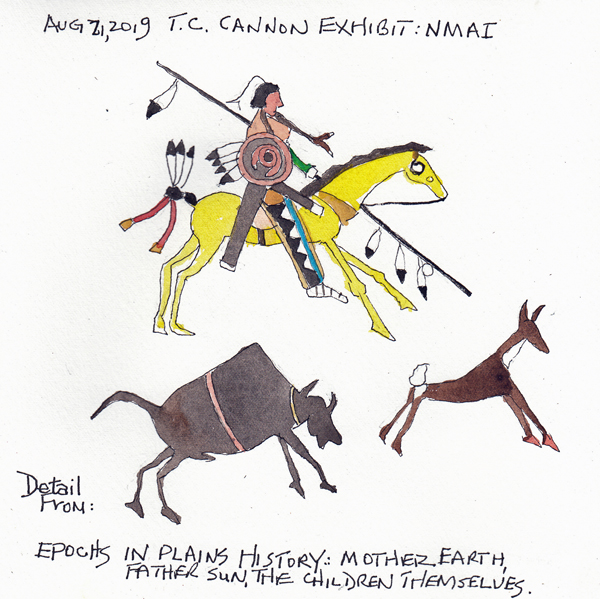 AUG 21, 2019 T.C. CANNON EXHIBIT: NMAI
Detail
From:
EPOCHS IN PLAINS HISTORY: MOTHER EARTH,
FATHER SUN, THE CHILDREN THEMSELVES.